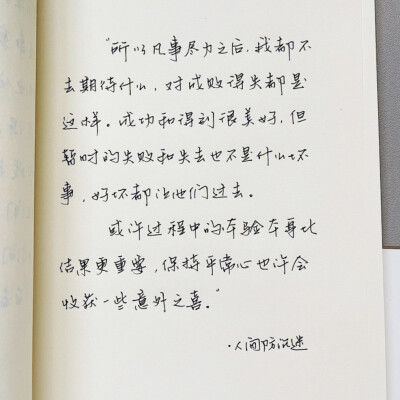 “所以凡事尽力之后,我都不
去期待什么,对成败得失都是
这样。成功和得到很美好,但
暂时的失败和失去也不是什么坏
事,好坏都让他们过去。
或许过程中的体验本身比
结果更重要,保持平常心也许会
收获一些意外之喜。”
·人间防沉迷